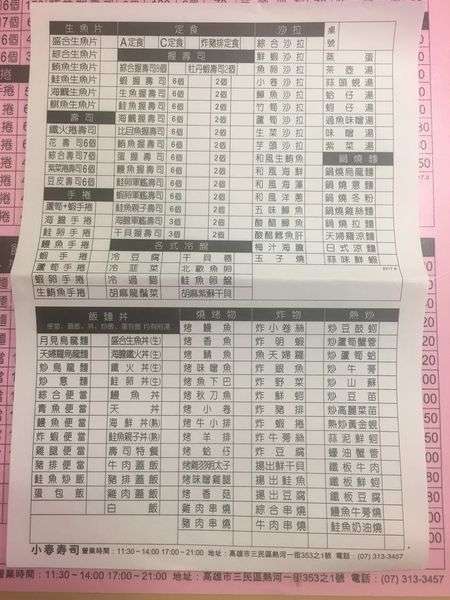 生魚片
盛合生魚片
綜合生魚片
鮪魚生魚片
鮭魚生魚片
海鱺生魚片
旗魚生魚片
壽司
鐵火捲壽司
花壽司 6個
綜合壽司 7個
紫菜捲壽司 6個
豆皮壽司 6個
手捲
蘆筍+蝦手捲
海膽手捲
鮭卵手捲
鰻魚手捲
蝦手捲
蘆筍手捲
蝦卵手捲
生鮪魚手捲
定食
A定食 C定食 炸豬排定食
握壽司
綜合握壽司9個 牡丹蝦壽司2個
蝦握壽司 6個 2個
生魚握壽司 6個 2個
鮭魚握壽司 6個 2個
海鱺握壽司 6個 2個
比目魚握壽司 6個 2個
鰻握壽司 6個 2個
蛋握壽司 6個 2個
鮭卵軍艦壽司 6個 2個
蝦卵軍艦壽司 6個 2個
鮭魚親子壽司 6個 2個
海膽握壽司 6個 2個
干貝握壽司 6個 2個
各式冷盤
冷豆腐 干貝唇
冷韮菜 北歐魚卵
冷過貓 鮭魚卵盤
胡麻龍鬚菜 胡麻紫蘇干貝
沙拉
綜合沙拉
魚卵沙拉
鮮蝦沙拉
小卷沙拉
竹筍沙拉
蘆筍沙拉
生菜沙拉
芋頭沙拉
和風生鮪魚
和風海鮮
和風海蜇
和風洋蔥
五味鯛魚
酸醋鯛魚
酸醋鱈魚肝
梅汁海膽
玉子燒
桌號
蒸蛋
茶壺湯
蒜頭蜆湯
蛤仔湯
過魚味噌湯
味噌湯
紫菜湯
鍋燒麵
鍋燒烏龍麵
鍋燒意麵
鍋燒冬粉
鍋燒雞絲麵
鍋燒拉麵
天婦羅涼麵
日式涼麵
蒜味鮮蝦
飯麵丼
月見烏龍麵 盛合生魚丼(生)
天婦羅烏龍麵 海膽鐵火丼(生)
炒烏龍麵 鐵火丼(生)
炒意麵 鮭卵丼(生)
綜合便當 鰻魚丼
青魚便當 天丼
鰻魚便當 海鮮丼(熟)
炸蝦便當 鮭魚親子丼(熟)
雞腿便當 壽司特餐
豬排便當 牛肉蓋飯
鮭魚便當 豬排蓋飯
鮭魚炒飯 雞肉蓋飯
蛋包飯 白飯
燒烤物
烤鰻魚
烤香魚
烤鯖魚
烤味噌魚
烤魚下巴
烤秋刀魚
烤小卷
烤牛小排
烤羊排
烤蛤仔
烤雞翅明太子
烤味噌雞腿
烤香菇
雞肉串燒
豬肉串燒
炸物
炸小卷絲
炸明蝦
魚天婦羅
炸銀魚
炸野菜
炸鮮蚵
炸豬排
炸蝦捲
炸牛蒡絲
炸豆腐
揚出鮮干貝
揚出鮭魚
揚出豆腐
綜合串燒
牛肉串燒
熱炒
炒豆鼓蚵
炒蘆筍蟹管
炒蘆筍蛤
炒牛蒡
炒山蘇
炒豆苗
炒高麗菜苗
熱炒黃金蜆
蒜泥鮮蚵
蠔油蟹管
鐵板牛肉
鐵板鮮蚵
鐵板豆腐
鰻魚牛蒡燒
鮭魚奶油燒
小春壽司 營業時間：11:30－14:00 17:00－21:00 地址：高雄市三民區熱河一街353之1號 電話：(07) 313-3457
營業時間：11:30－14:00 17:00－21:00 地址：高雄市三民區熱河一街353之1號 電話：(07) 313-3457